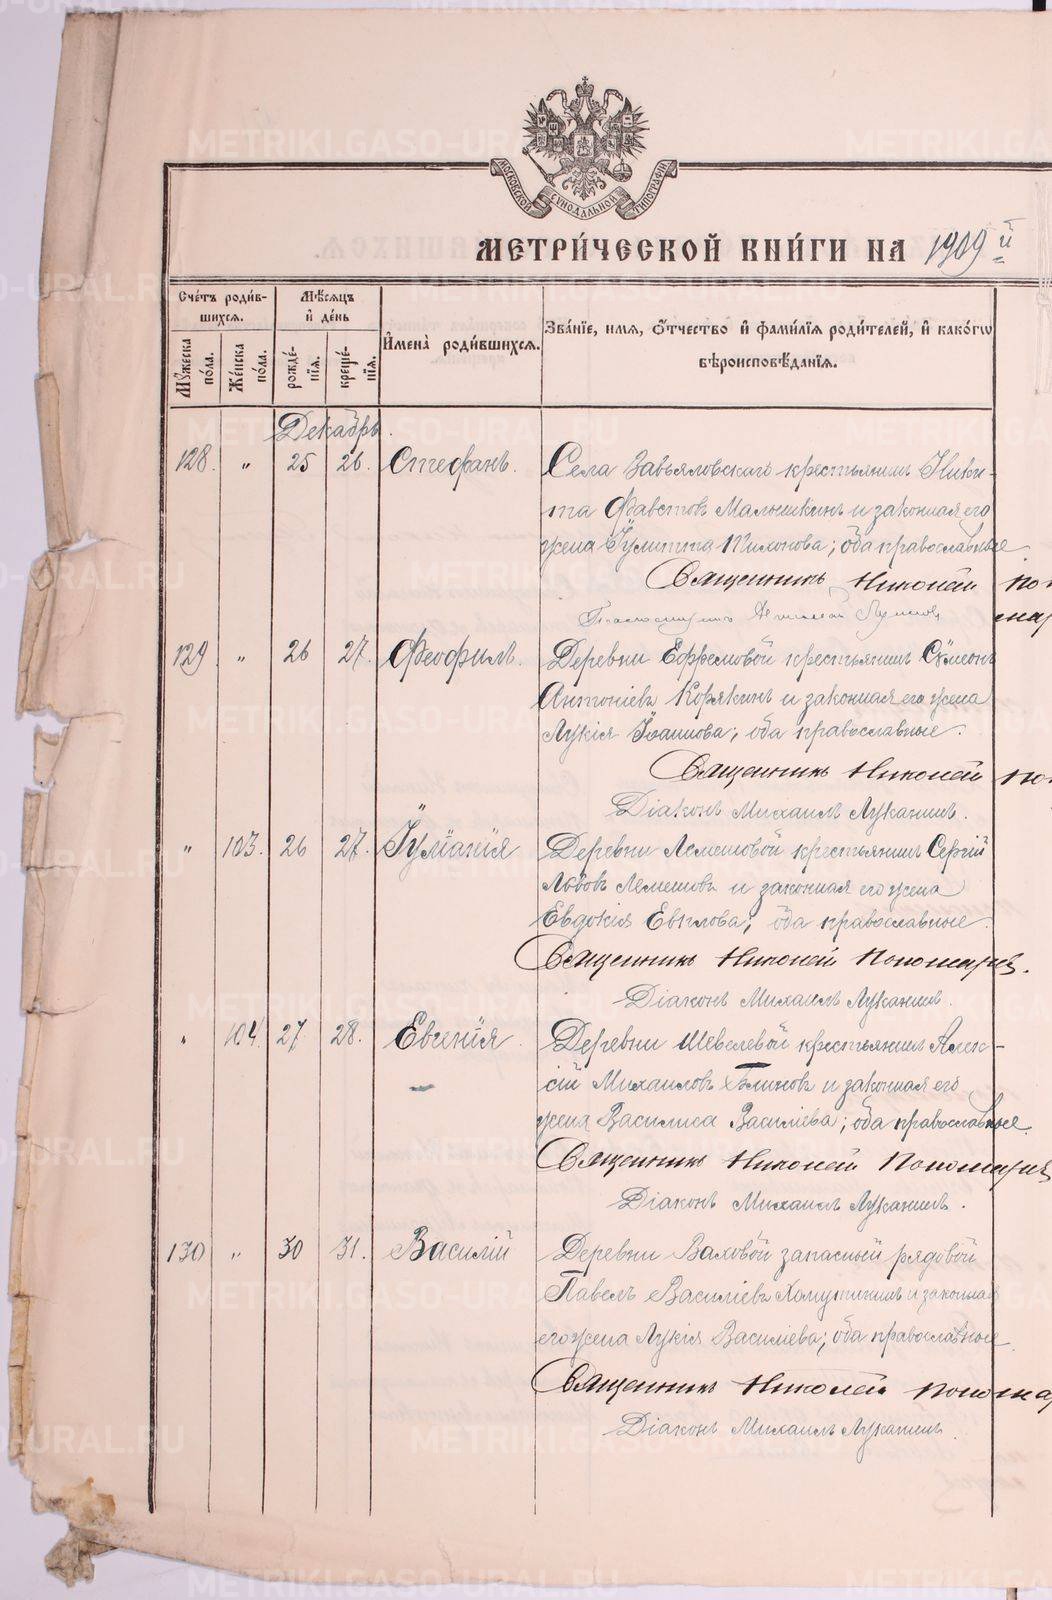 МОСКОВСКОЙ СУНОДАЛЬНОЙ ТИПОГРАФІИ
МЕТРИ́ЧЕСКОЙ КНИ́ГИ НА 1909й
Сче́тъ роди́в-
шихсѧ.
Мѣ́сѧцъ
и҆ де́нь
Мꙋ́жеска по́ла.
Же́нска по́ла.
рожде́-нїѧ.
креще́-нїѧ.
И҆мена̀ роди́вшихсѧ.
Зва́нїе, и҆мѧ, ѻ҆́тчество и҆ фами́лїѧ роди́телей, и҆ како́гѡ
вѣроисповѣ́данїѧ.
Декабрь.
128. " 25 26. Стефанъ. Села Завьяловскаго крестьянинъ Ники-
та Фавстовъ Малышкинъ и законная его
жена Іулитта Тихонова; оба православные
Священникъ Николай Пон
мар
129 " 26 27. Феофилъ. Деревни Ефремовой крестьянинъ Сѵмеонъ
Антоніевъ Корякинъ и законная его жена
Лукія Іоаннова; оба православные.
Священникъ Николай По
Діаконъ Михаилъ Луканинъ.
" 103. 26 27. Іуліанія Деревни Лемешовой крестьянинъ Сергій
Львовъ Лемешовъ и законная его жена
Евдокія; оба православные.
Священникъ Николай Пономаревъ.
Діаконъ Михаилъ Луканинъ.
" 104. 27 28. Евгенія. Деревни Шевелевой крестьянинъ Алек-
сій Михаиловъ Блиновъ и законная его
жена Василиса Василіева; оба православные.
Священникъ Николай Пономарев
Діаконъ Михаилъ Луканинъ.
130 " 30 31. Василій Деревни Ваховой запасный рядовой
Павелъ Василіевъ Хомутининъ и законная
его жена Лукія Василіева; оба православные.
Священникъ Николай Понома
Діаконъ Михаилъ Луканинъ.
METRIKI.GASO-URAL.RU